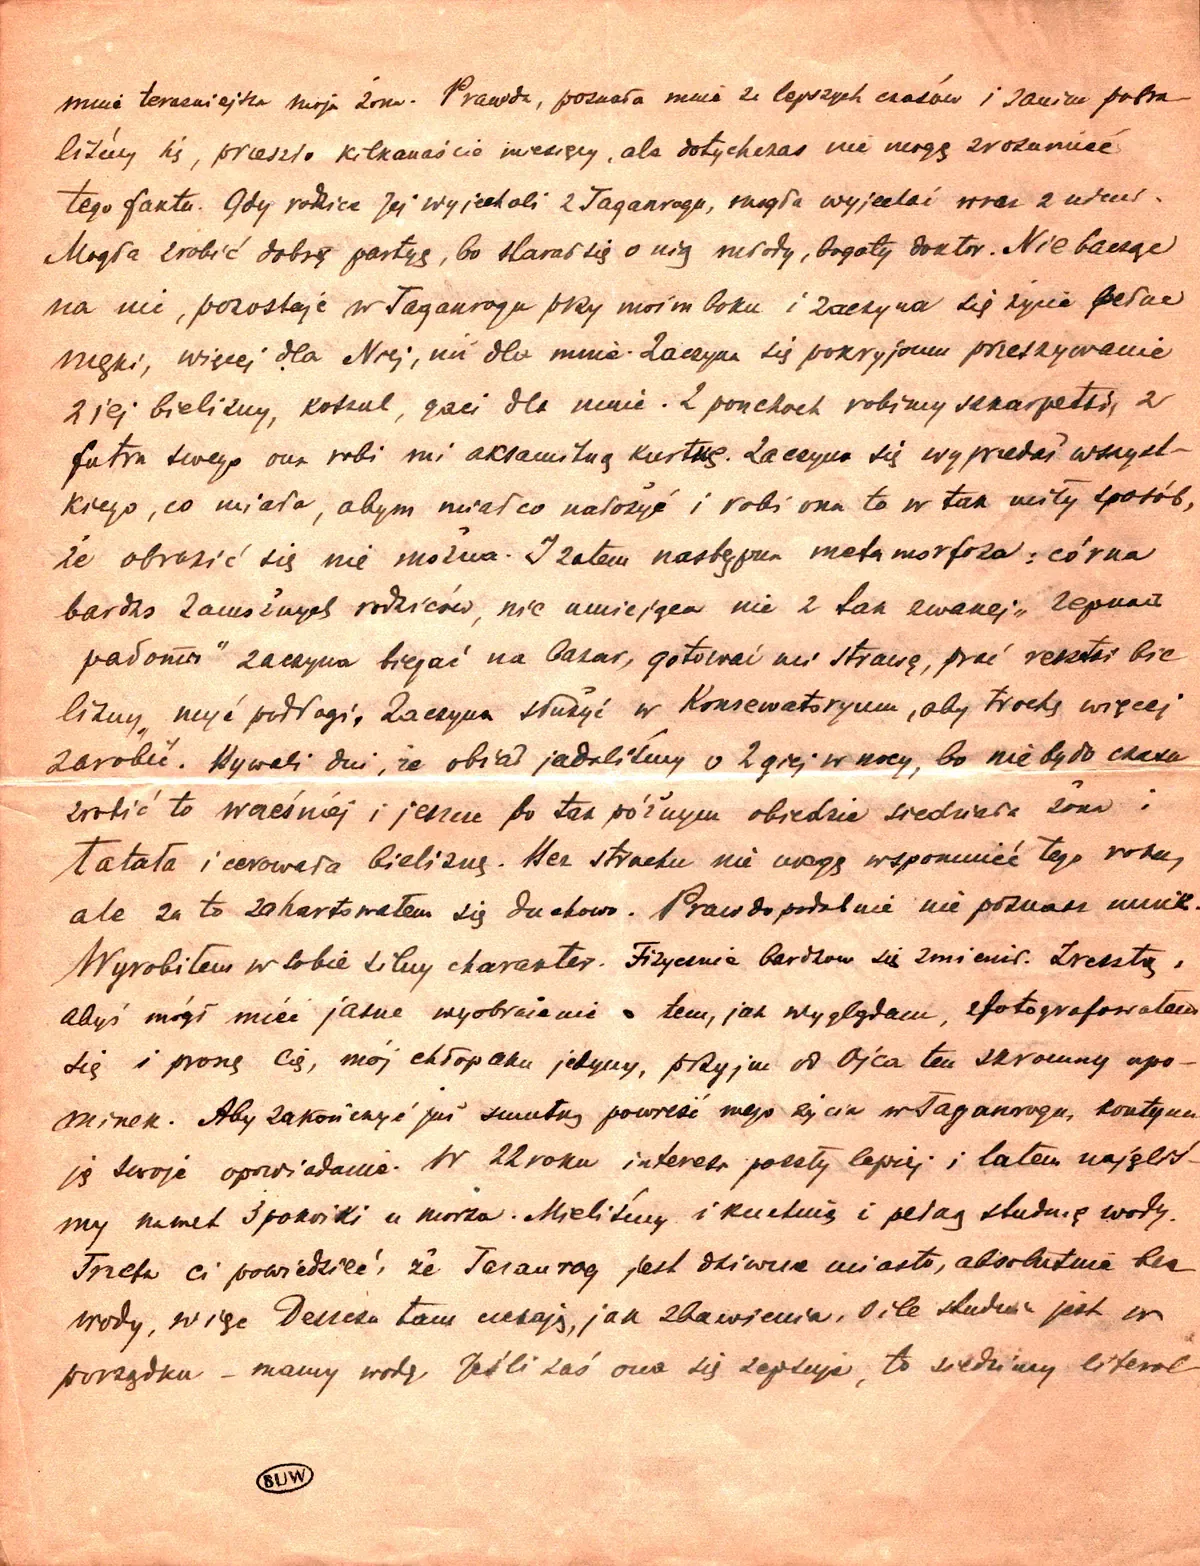 mnie teraźniejsza moja żona. Prawda, poznała mnie ze lepszych czasów i zanim pobra-
liśmy się, przeszło kilkanaście miesięcy, ale dotychczas nie mogę zrozumieć
tego faktu. Gdy rodzice Jej wyjechali z Taganrogu, mogła wyjechać wraz z nimi.
Mogła zrobić dobrą partyę, bo starał się o nią młody, bogaty doktor. Nie bacząc
na nic, pozostaje w Taganrogu przy moim boku i zaczyna się życie pełne
męki, więcej dla Niej, niż dla mnie. Zaczyna się pokryjomu przeszywanie
z jej bielizny, koszul, gaci dla mnie. Z ponczoch robimy szkarpetki, z
futra swego ona robi mi aksamitną kurtkę. Zaczyna się wyprzedaż wszyst-
kiego, co miała, abym miał co nałożyć i robi ona to w tak miły sposób,
że obrazić się nie można. I zatem następna metamorfoza: córka
bardzo zamożnych rodziców, nic umiejąca nie z tak zwanej „
" zaczyna biegać na bazar, gotować mi strawę, prać resztki bie
lizny, myć podłogi. Zaczyna służyć w Konserwatoryum, aby trochę więcej
zarobić. Bywali dni, że obiad jadaliśmy o 2giej w nocy, bo nie było czasu
zrobić to wcześniej i jeszcze po tak późnym obiedzie siedziała żona i
łatała i cerowała bieliznę. Bez strachu nie mogę wspomnieć tego roku,
ale za to zahartowałem się duchowo. Prawdopodobnie nie poznasz mnie.
Wyrobiłem w sobie silny charakter. Fizycznie bardzom się zmienił. Zresztą,
abyś mógł mieć jasne wyobrażenie o tem, jak wyglądam, sfotografowałem
się i proszę Cię, mój chłopaku jedyny, przyjm od Ojca ten skromny upo-
minek. Aby zakończyć już smutną powieść mego życia w Taganrogu, kontynu
ję swoje opowiadanie. W 22 roku interesa poszły lepiej i latem najęliś-
my nawet 3 pokoiki u morza. Mieliśmy i kuchnię i pełną studnię wody.
Trzeba ci powiedzieć, że Taganrog jest dziwne miasto, absolutnie bez
wody, więc Deszcza tam czekają, jak zbawienia. O ile studnia jest w
porządku – mamy wodę, Jeśli zaś ona się zepsuje, to siedzimy literal-
BUW